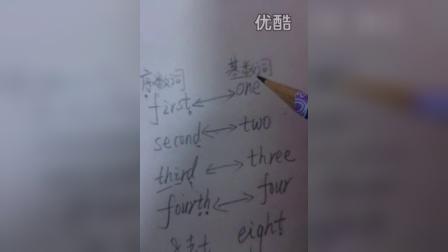 优酷
序数词 基数词
first ↔ one
second ↔ two
third ↔ three
fourth ↔ four
eight